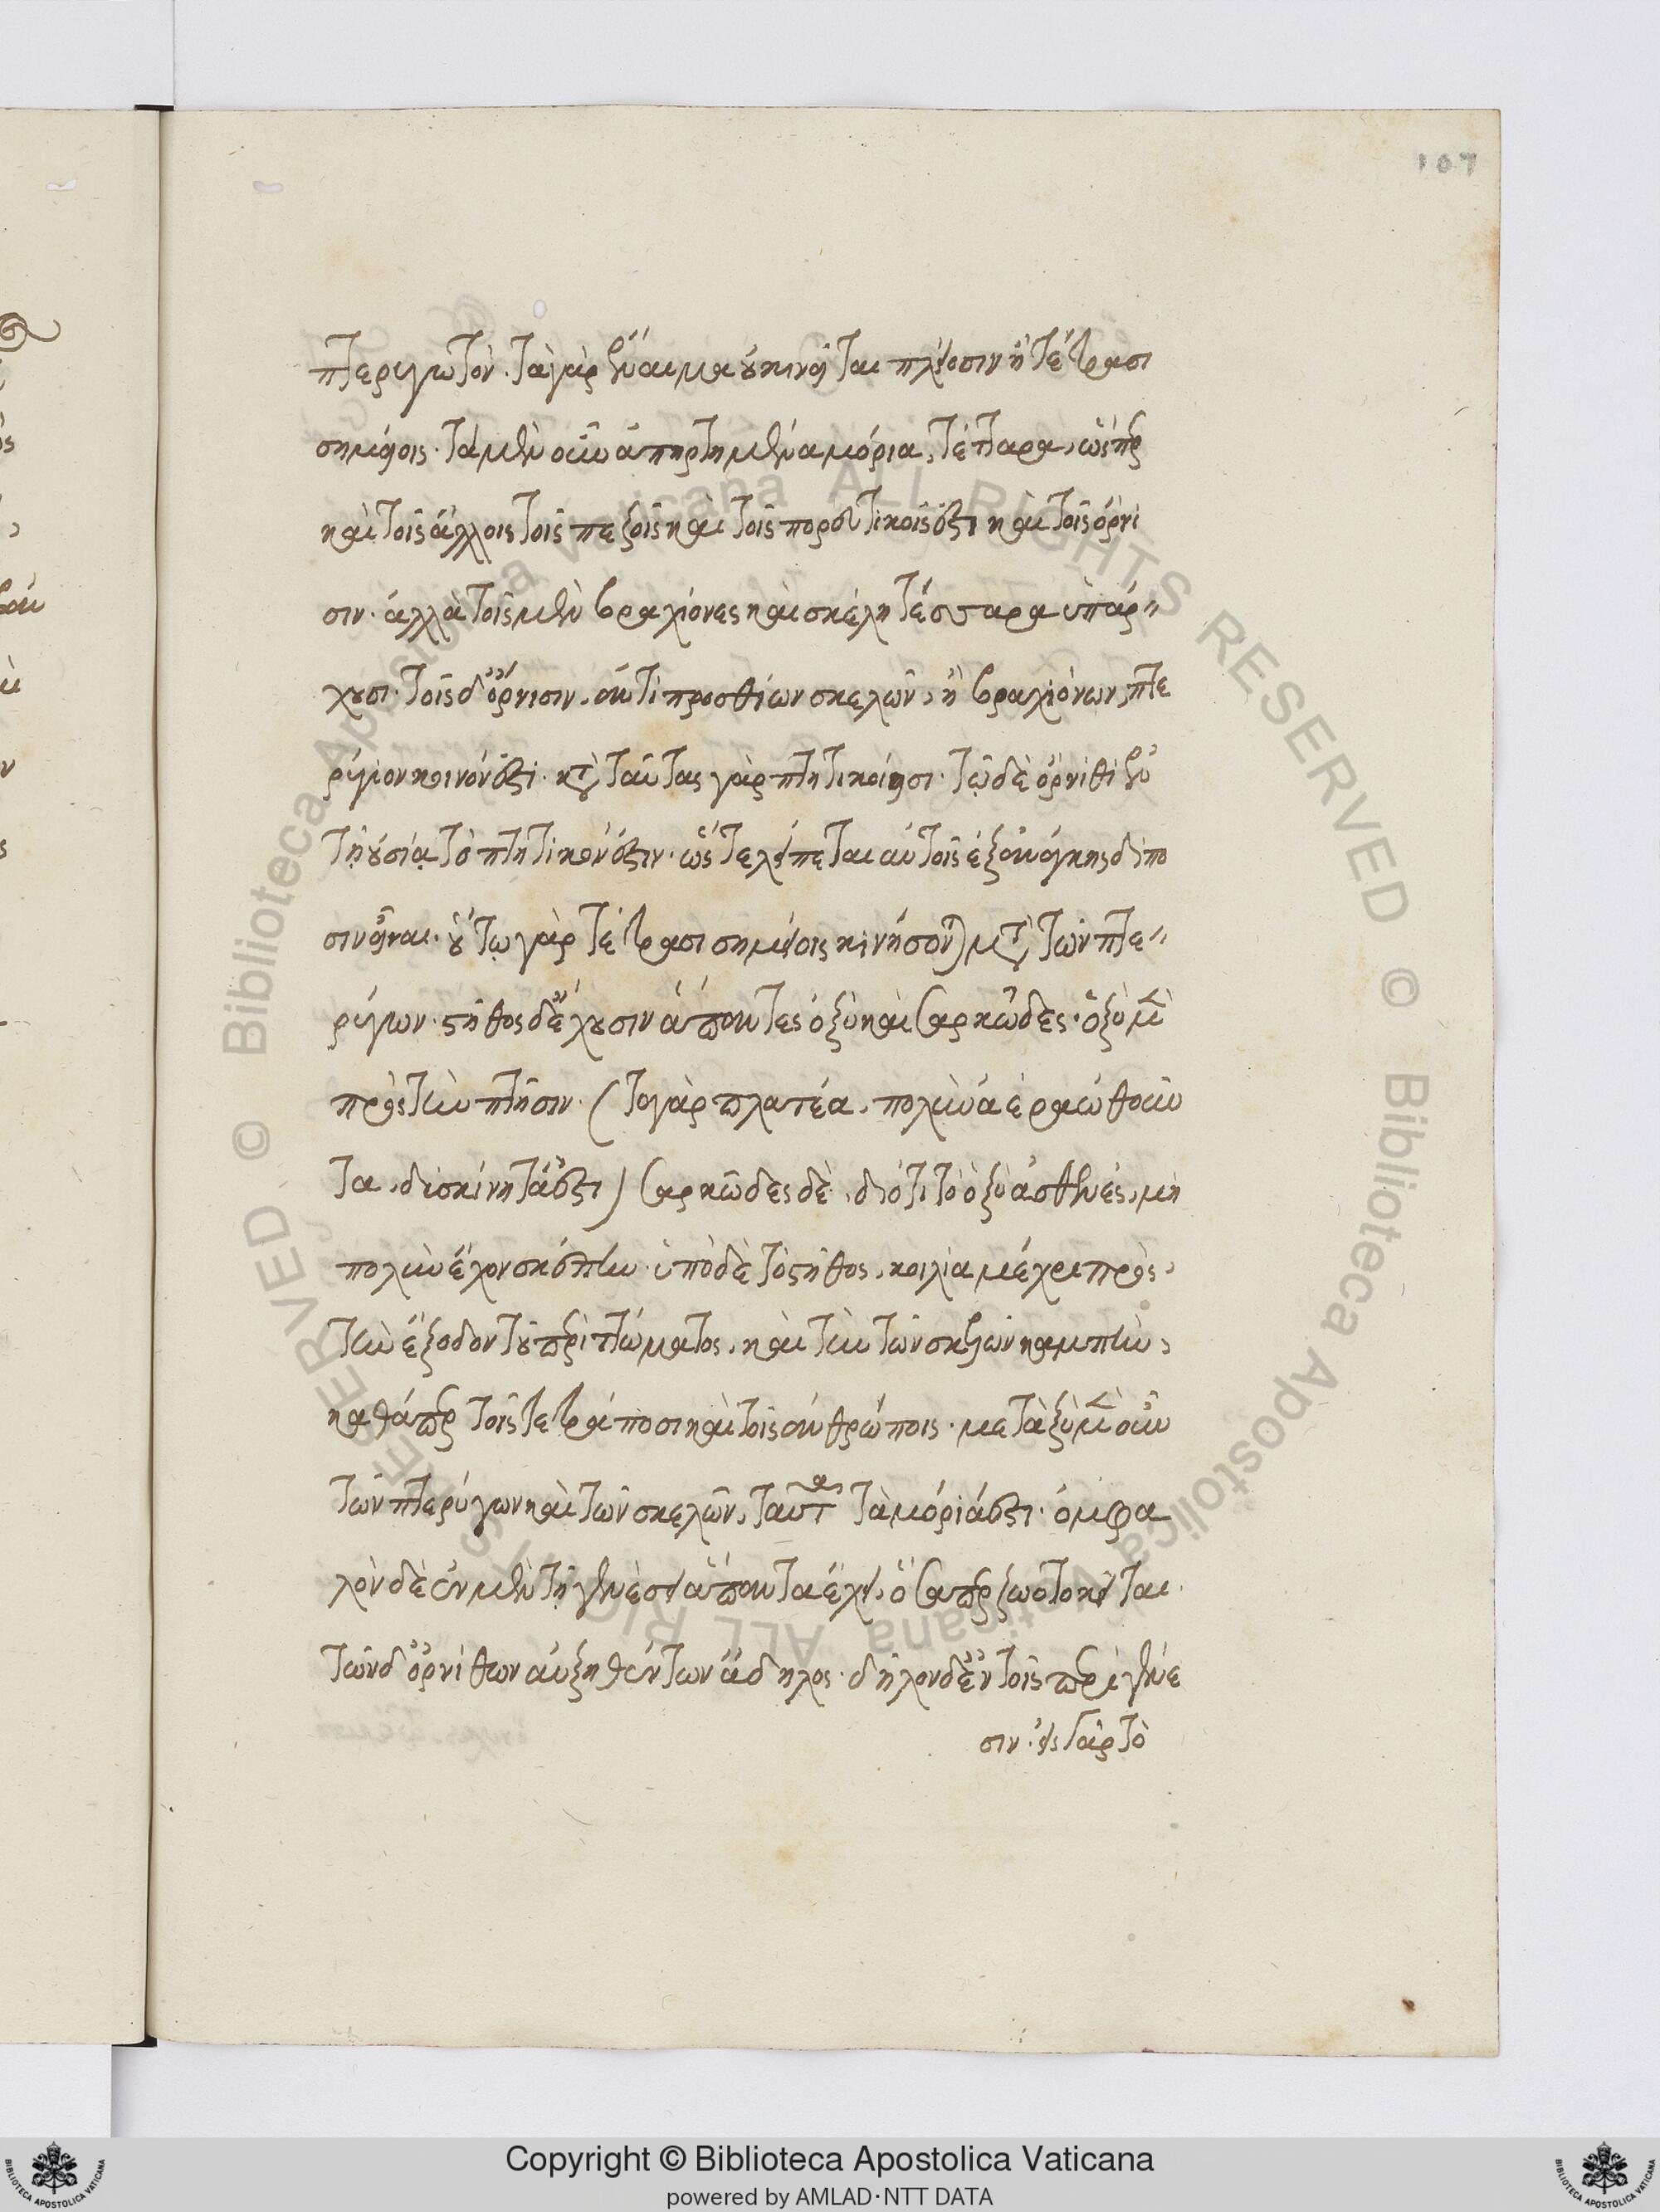 107
πτερυγωτόν. τὰ γὰρ ἔναιμα οὐ κινεῖται πλείοσιν ἢ τέτρασι
σημείοις. τὰ μὲν οὖν ἀπηρτημένα μόρια, τέτταρα, ὥσπερ
καὶ τοῖς ἄλλοις τοῖς πεζοῖς καὶ τοῖς πορευτικοῖς ἐστι καὶ τοῖς ὄρνι
σιν. ἀλλὰ τοῖς μὲν βραχίονες καὶ σκέλη τέσσαρα ὑπάρ〃
χουσι. τοῖς δ' ὄρνισιν, ἀντὶ προσθίων σκελῶν, ἢ βραχιόνων, πτε
ρύγιον κοινόν ἐστι. κατὰ ταύτας γὰρ πτητικοί εἰσι. τῷ δὲ ὄρνιθι ἐν
τῇ οὐσίᾳ τὸ πτητικόν ἐστιν. ὥστε λείπεται αὐτοῖς ἐξ ἀνάγκης δίπο
σιν εἶναι. οὕτω γὰρ τέτρασι σημείοις κινήσονται μετὰ τῶν πτε〃
ρύγων. στῆθος δ' ἔχουσιν ἅπαντες ὀξὺ καὶ σαρκῶδες. ὀξὺ μὲν
πρὸς τὴν πτῆσιν. (τὸ γὰρ πλατέα, πολὺν ἀέρα ὠθοῦν
τα, δισκίνητά ἐστι) σαρκῶδες δὲ, διότι τὸ ὀξὺ ἀσθενές, μὴ
πολλὴν ἔχον σκέπην. ὑπὸ δὲ τὸ στῆθος, κοιλία μέχρι πρὸς,
τὴν ἔξοδον τοῦ περιττώματος, καὶ τὴν τῶν σκελῶν καμπὴν,
καθάπερ τοῖς τετράποσι καὶ τοῖς ἀνθρώποις. μεταξὺ μὲν οὖν
τῶν πτερύγων καὶ τῶν σκελῶν, ταῦτα τὰ μόριά ἐστι. ὀμφα
λὸν δὲ ἐν μὲν τῇ γενέσει ἅπαντα ἔχει, ὅσαπερ ζωοτοκεῖται.
τῶν δ' ὀρνίθων αὐξηθέντων ἄδηλος. δῆλον δ' ἐν τοῖς περὶ γένε
σιν. εἰς γὰρ τὸ
Copyright © Biblioteca Apostolica Vaticana
powered by AMLAD·NTT DATA